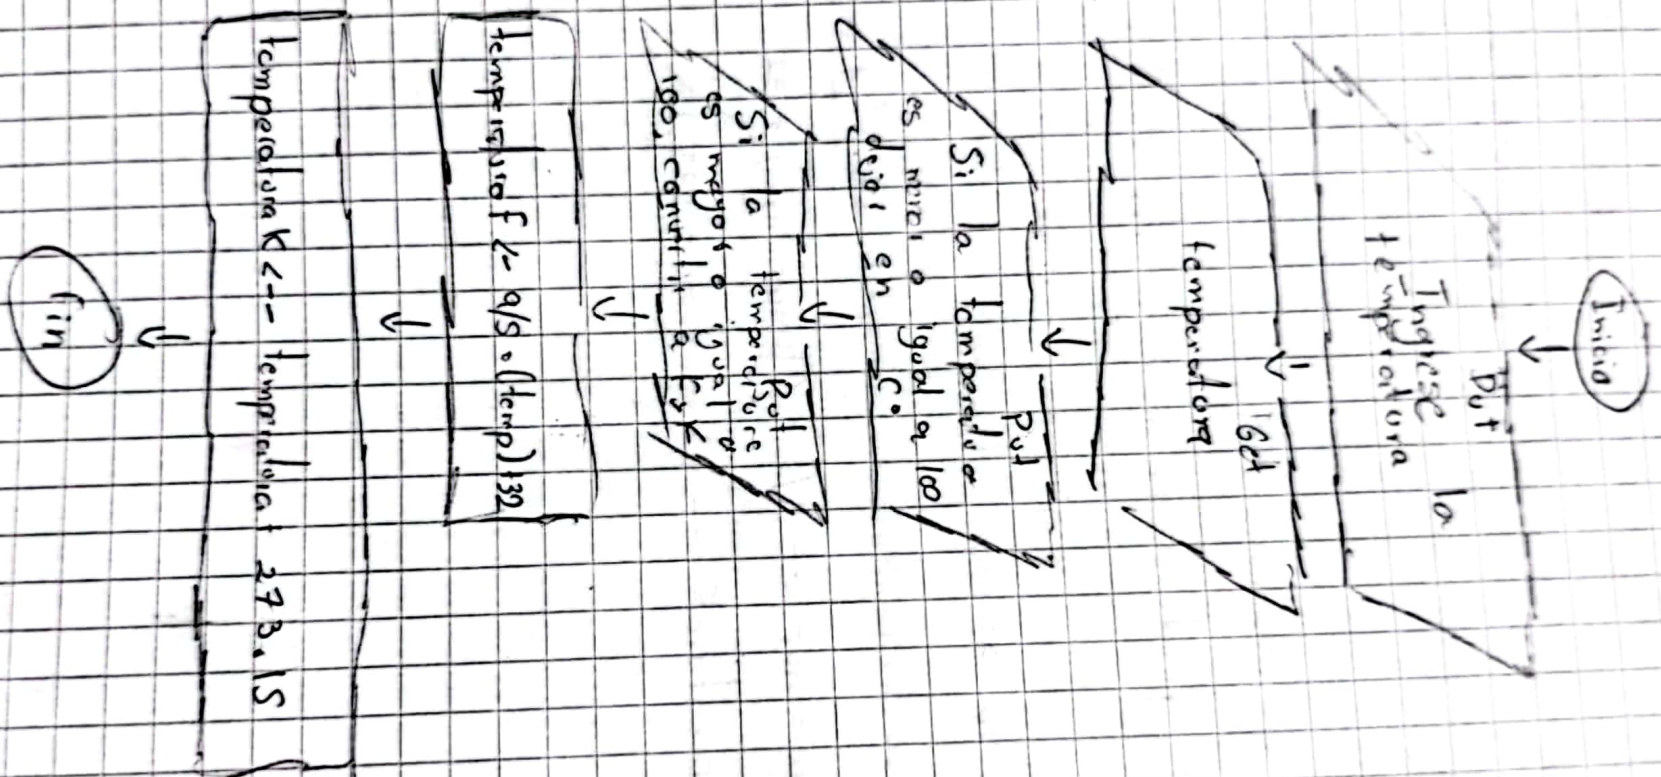 Inicio
Put
Ingrese la
temperatura
Get
temperatura
Put
Si la temperatura
es menor o igual a 100
dejar en C°
Put
Si la temperature
es mayor o igual a
100, convertir a F y K
temperatura F <- 9/5 . (temp)+32
temperatura K <-- temperatura + 273.15
fin